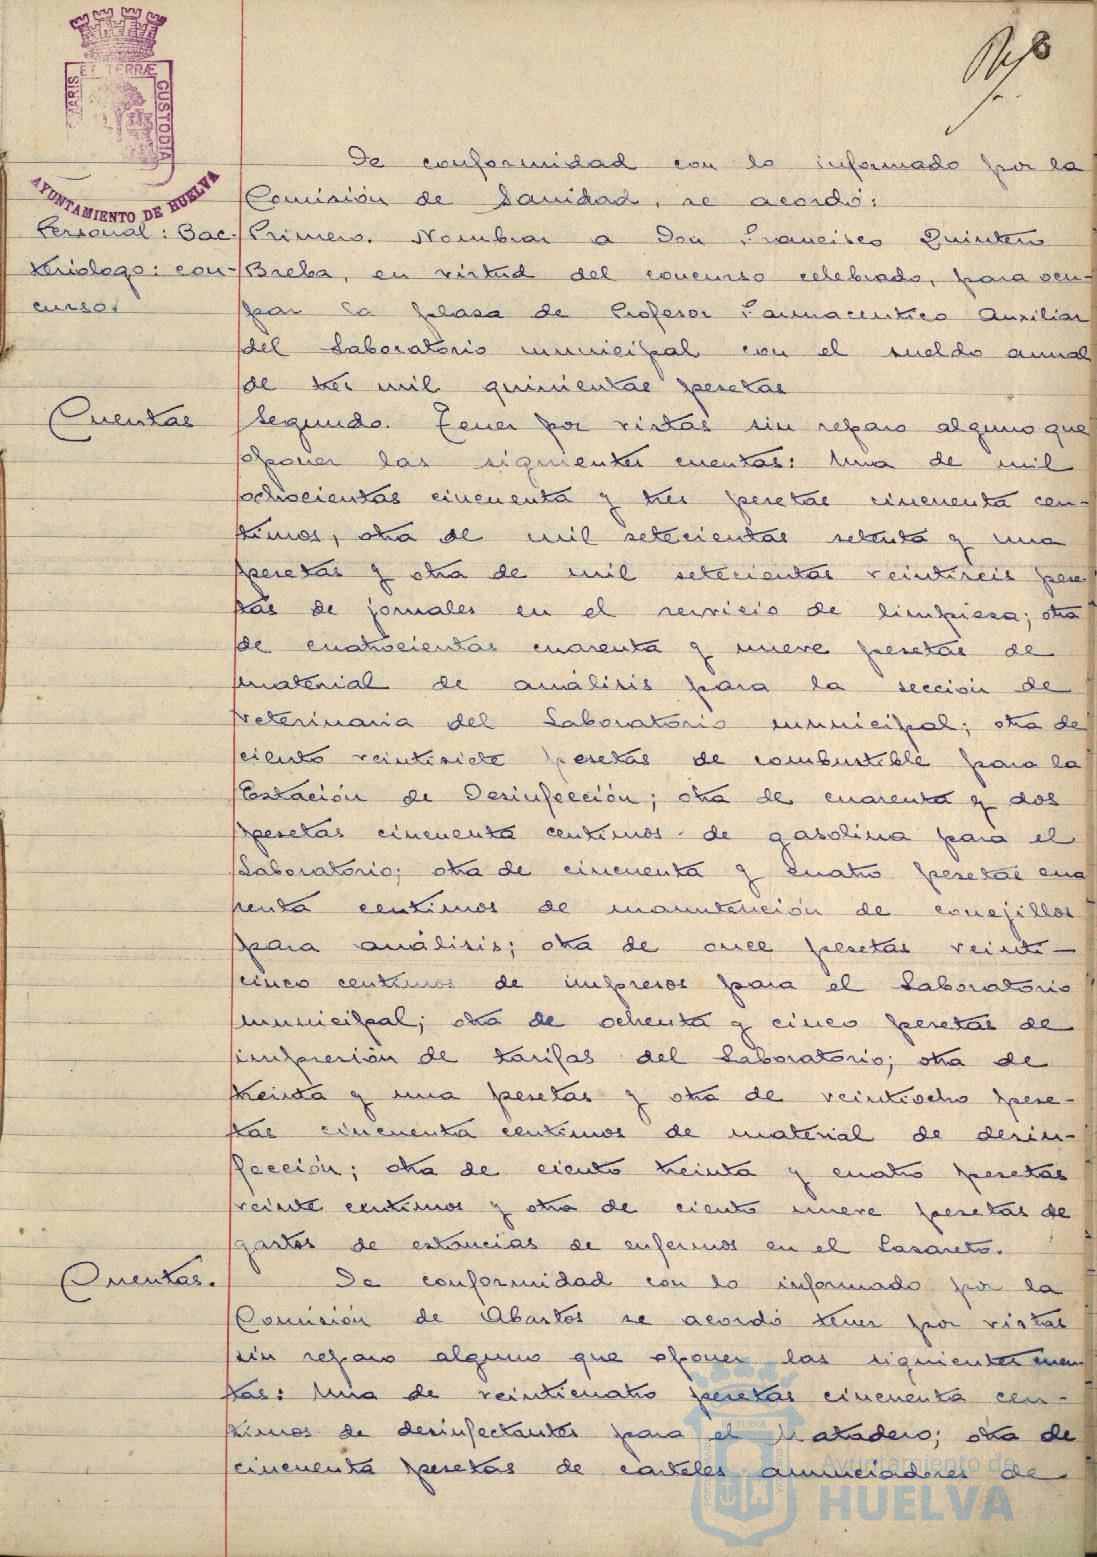 ET TERRÆ
MARIS
CUSTODIA
AYUNTAMIENTO DE HUELVA
8
De conformidad con lo informado por la
Comisión de Sanidad, se acordó:
Personal: Bac-
teriologo: con-
curso.
Primero. Nombrar a Don Francisco Quintero
Breba, en virtud del concurso celebrado, para ocu-
par la plasa de Profesor Farmaceutico Auxiliar
del Laboratorio municipal con el sueldo anual
de tres mil quinientas pesetas
Cuentas
Segundo. Tener por vistas sin reparo alguno que
oponer las siguientes cuentas: Una de mil
ochocientas cincuenta y tres pesetas cincuenta cen-
timos, otra de mil setecientas setenta y una
pesetas y otra de mil setecientas veintiseis pese-
tas de jornales en el servicio de limpiesa; otra
de cuatrocientas cuarenta y nueve pesetas de
material de análisis para la sección de
veterinaria del Laboratorio municipal; otra de
ciento veintisiete pesetas de combustible para la
Estación de Desinfección; otra de cuarenta y dos
pesetas cincuenta centimos de gasolina para el
Laboratorio; otra de cincuenta y cuatro pesetas cua
renta centimos de manutención de conejillos
para análisis; otra de once pesetas veinti-
cinco centimos de impresos para el Laboratorio
municipal; otra de ochenta y cinco pesetas de
impresión de tarifas del Laboratorio; otra de
treinta y una pesetas y otra de veintiocho pese-
tas cincuenta centimos de material de desin-
fección; otra de ciento treinta y cuatro pesetas
veinte centimos y otra de ciento nueve pesetas de
gastos de estancias de enfermos en el Lasareto.
Cuentas.
De conformidad con lo informado por la
Comisión de Abastos se acordó tener por vistas
sin reparo alguno que oponer las siguientes cuen-
tas: Una de veinticuatro pesetas cincuenta cen-
timos de desinfectantes para el Matadero; otra de
cincuenta pesetas de carteles anunciadores de
Ayuntamiento de
HUELVA